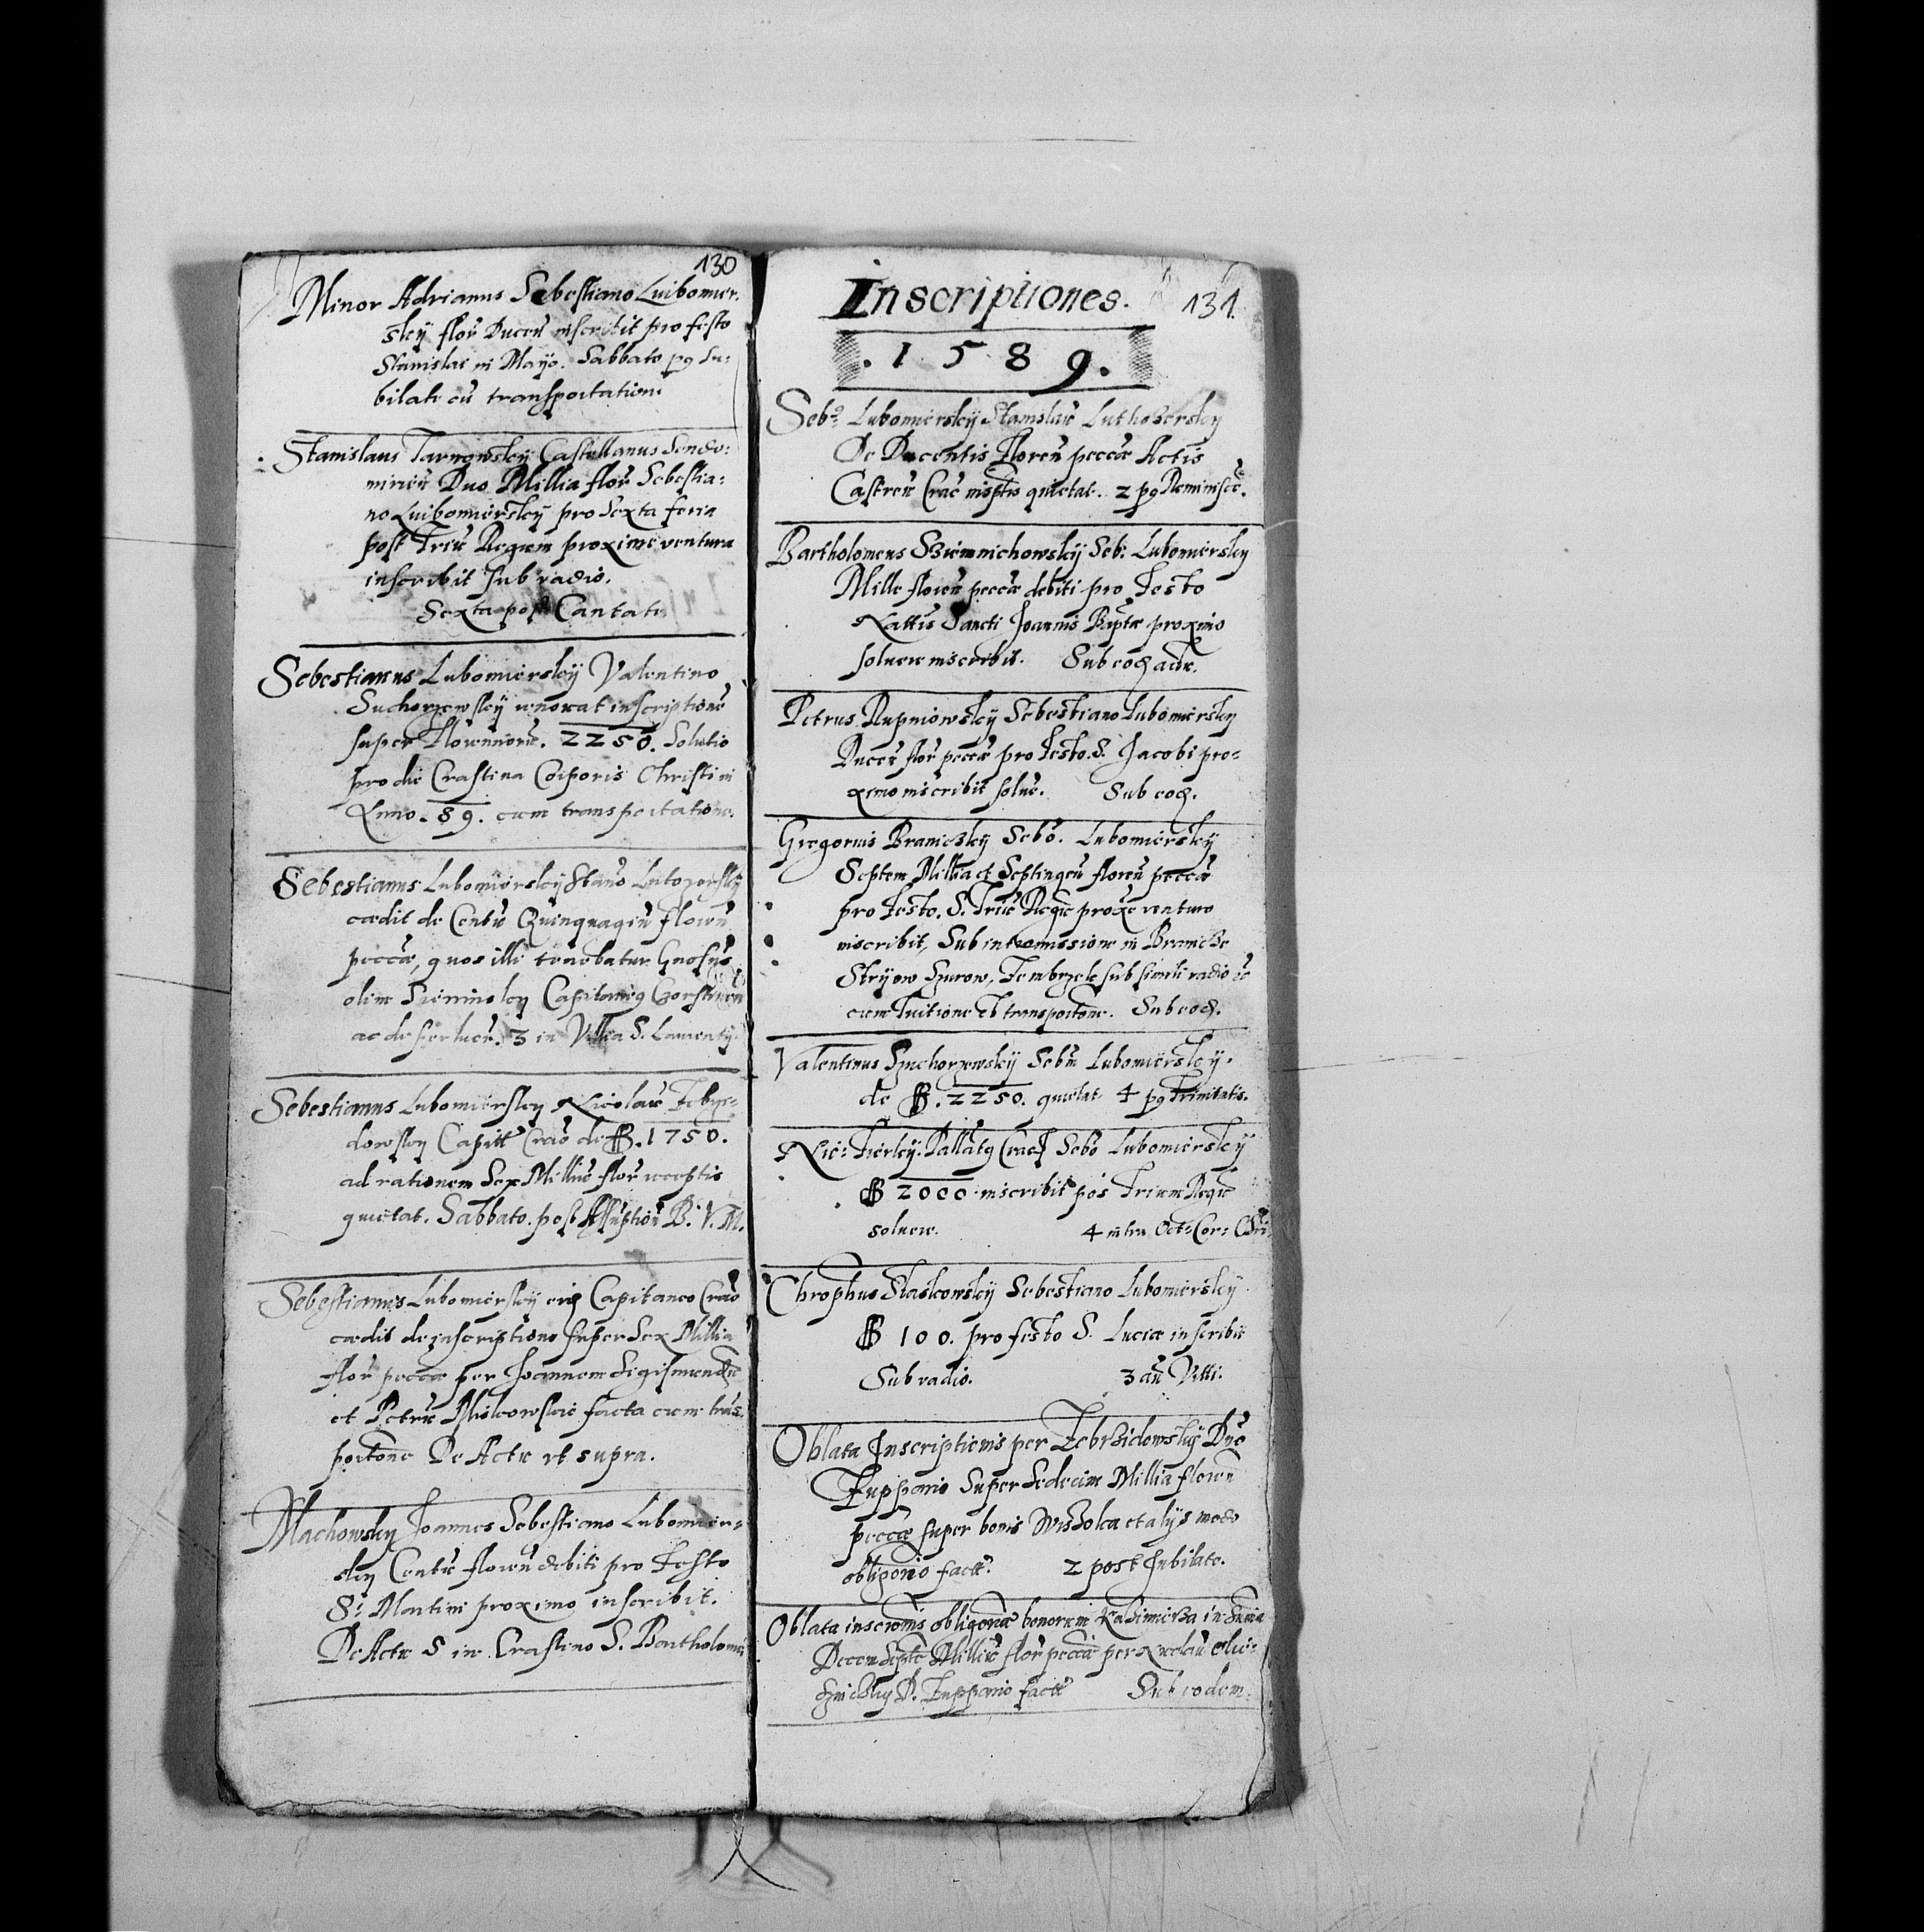 130
Minor Adrianus Sebestiano Luibomier,
sky flor̃ Ducen̄ inscribit pro festo
Stanislai in Mayo. Sabbato pꝯ Iu:
bilate cū transportatione
Stanislaus Tarnowsky Castellanus Sendo:
mirieñ Duo Millia flor̃ Sebestia:
no Luibomiersky pro Sexta feria
post Triũ Regum proxime ventura
inscribit sub vadio.
Sexta post Cantate
Sebestianus Lubomiersky Valentino
Suchorzewsky renovat inscriptionẽ
super florenorũ. 2250. Solutio
pro die Crastina Corporis Christi in
Anno. 89. cum transportatione.
Sebestianus Lubomiersky Stanõ Lutogorsky
cædit de Centũ Quinquagiñ floreñ
peccæ, quos illi tenebatur Gnosus
olim
ac de lucr̃. 3 in Villia S. Laurentij.
Sebestianus Lubomiersky Nicolao Zebrzi:
dowsky Capitt Craõ de ff. 1750.
ad rationem Sex Milliũ flor̃ receptis
quietat. Sabbato. post Assũption B. V. M.
Sebestianus Lubomiersky eidꝫ Capitaneo Craõ
cædit de inscriptione super Sex Millia
flor̃ peccæ per Joannem Sigismundũ
et Petrũ Miskowskie facta cum trãs:
portõne De Actu ut supra.
Machowsky Joannes Sebestiano Lubomier:
sky Centũ floreñ debiti pro Festo
S: Martini proximo inscribit.
De Actu S in Crastino S. Bartholomei
Inscriptiones. 131.
. 1 5 8 9 .
Seb: Lubomiersky Stanislao Luthoserskey
De Ducentis Floreñ peccæ Actis
Castreñ Crac inscptis quietat. 2 pꝯ Reminiscẽ.
Bartholomeus Sziemichowsky Seb: Lubomiersky
Mille floreñ peccæ debiti pro Festo
Nattis Sancti Joannis Baptæ proximo
soluere inscribit. Sub eodꝫ actu.
Petrus Rupniowsky Sebestiano Lubomiersky
Duceñ flor̃ peccæ pro Festo. S. Jacobi pro:
ximo inscribit solue. Sub eodꝫ.
Gregorius Branicsky Sebõ. Lubomiersky
Septem Millia et Septingeñ floreñ peccæ
pro Festo. S. Triũ Regũ proxe venturo
inscribit, Sub intromissione in Branicze
Stryow Szurow, Zembrzek sub simili vadio ꝛc
cum Tuitione et transportone. Sub eodꝫ.
Valentinus Szuchorzewsky Sebm̃ Lubomiersky.
de ff. 2250. quietat 4 pꝯ Trinitatis.
Nic: Fierley. Pallatꝯ Crac Sebõ Lubomiersky
ff 2000 inscribit põs Trium Regũ
soluere. 4 intra Oct: Cor: Chri:
Chrophus Slaskowsky Sebestiano Lubomiersky
ff 100. pro festo S. Luciæ inscribit
Sub vadio. 3 añ Viti.
Oblata Inscriptionis per Zebrzidowsky Dño
Zuppario Super Sedecim Millia floreñ
peccæ super bonis Wisolca et alijs modo
obligõrio fact̃. 2 post Iubilate.
Oblata inscrõnis obligoriæ bonorum Kazimirza in Suma
Decem Septẽ Milliũ flor̃ peccæ per Nicolaũ Olie:
D. Zuppario fact̃ Sub eodem.